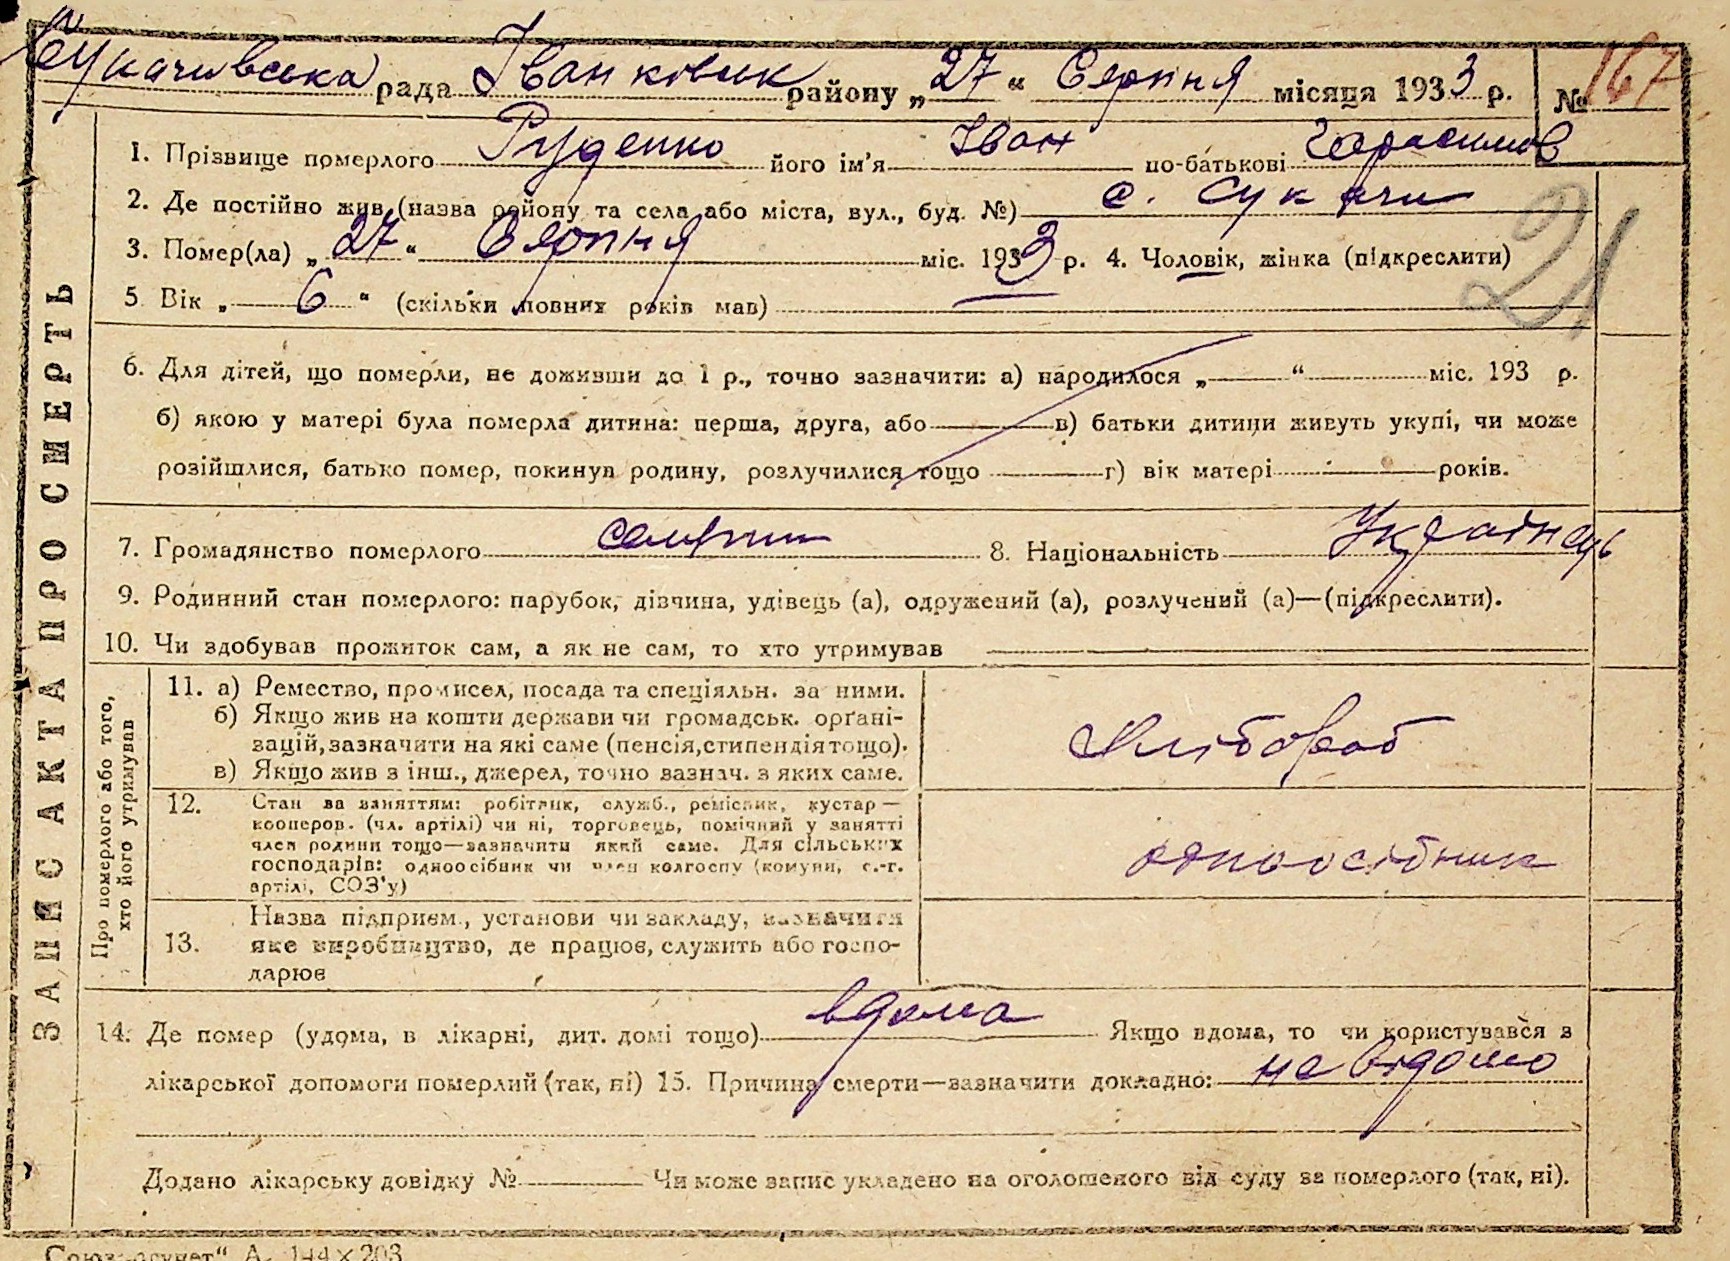 Сукачівська рада Іванківськ району „27“ Серпня місяця 1933 р. № 167
1. Прізвище померлого Руденко його ім'я Іван по-батькові Герасимов
2. Де постійно жив (назва району та села або міста, вул., буд. №) с. Сукачи
3. Помер(ла) „27“ Серпня міс. 1933 р. 4. Чоловік, жінка (підкреслити)
21
5 Вік „6“ (скільки повних років мав)
6. Для дітей, що померли, не доживши до 1 р., точно зазначити: а) народилося „ “ міс. 193 р.
б) якою у матері була померла дитина: перша, друга, або в) батьки дитини живуть укупі, чи може
розійшлися, батько помер, покинув родину, розлучилися тощо г) вік матері років.
7. Громадянство померлого 8. Національність Українець
9. Родинний стан померлого: парубок, дівчина, удівець (а), одружений (а), розлучений (а)—(підкреслити).
10. Чи здобував прожиток сам, а як не сам, то хто утримував
ЗАПИС АКТА ПРО СМЕРТЬ
Про померлого або того, хто його утримував
11. а) Ремество, промисел, посада та спеціяльн. за ними.
б) Якщо жив на кошти держави чи громадськ. орґані-
зацій, зазначити на які саме (пенсія, стипендія тощо).
в) Якщо жив з інш., джерел, точно зазнач. з яких саме.
Хлібороб
12. Стан за заняттям: робітник, служб., ремісник, кустар—
кооперов. (чл. артілі) чи ні, торговець, помічний у занятті
член родини тощо—зазначити який саме. Для сільських
господарів: одноосібник чи член колгоспу (комуни, с.-г.
артілі, СОЗ'у)
одноосібник
13. Назва підприєм., установи чи закладу, зазначити
яке виробництво, де працює, служить або госпо-
дарює
14. Де помер (удома, в лікарні, дит. домі тощо) вдома Якщо вдома, то чи користувався з
лікарської допомоги померлий (так, ні) 15. Причина смерти—зазначити докладно: не відомо
Додано лікарську довідку № Чи може запис укладено на оголошеного від суду за померлого (так, ні).
А. 144×203